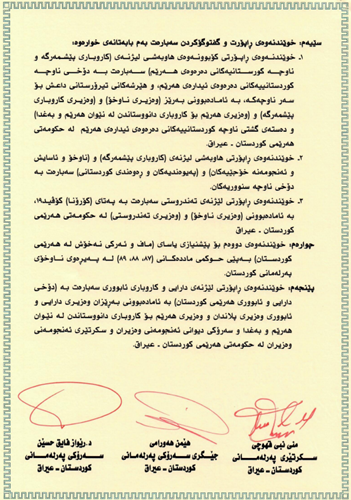 سێیەم: خوێندنەوەی ڕاپۆرت و گفتوگۆکردن سەبارەت بەم بابەتانەی خوارەوە:
١. خوێندنەوەی ڕاپۆرتی کۆبوونەوەی هاوبەشی لیژنەی (کاروباری پێشمەرگە و
ناوچە کوردستانیەکانی دەرەوەی هەرێم) سەبارەت بە دۆخی ناوچە
کوردستانییەکانی دەرەوەی ئیدارەی هەرێم، و هێرشەکانی تیرۆرستانی داعش بۆ
سەر ناوچەکە، بە ئامادەبوونی بەرێز (وەزیری ناوخۆ) و (وەزیری کاروباری
پێشمەرگە) و (وەزیری هەرێم بۆ کاروباری دانووستاندن لە نێوان هەرێم و بەغدا)
و دەستەی گشتی ناوچە کوردستانییەکانی دەرەوەی ئیدارەی هەرێم لە حکومەتی
هەرێمی کوردستان - عیراق.
٢. خوێندنەوەی ڕاپۆرتی هاوبەشی لیژنەی (کاروباری پێشمەرگە) و (ناوخۆ و ئاسایش
و ئەنجومەنە خۆجێیەکان) و (پەیوەندیەکان و ڕەوەندی کوردستانی) سەبارەت بە
دۆخی ناوچە سنوورییەکان.
٣. خوێندنەوەی ڕاپۆرتی لێژنەی تەندروستی سەبارەت بە پەتای (کۆرۆنا) کۆڤید١٩،
بە ئامادەبوونی (وەزیری ناوخۆ) و (وەزیری تەندروستی) لە حکومەتی هەرێمی
کوردستان - عیراق.
چوارەم: خوێندنەوەی دووەم بۆ پێشنیازی یاسای (ماف و ئەرکی نەخۆش لە هەرێمی
کوردستان) بەپێی حوکمی ماددەکانی (٨٧، ٨٨، ٨٩) لە پەیڕەوی ناوخۆی
پەرلەمانی کوردستان.
پێنجەم: خوێندنەوەی ڕاپۆرتی لێژنەی دارایی و کاروباری ئابووری سەبارەت بە (دۆخی
دارایی و ئابووری هەرێمی کوردستان) بە ئامادەبوونی بەرێزان وەزیری دارایی و
ئابووری و وەزیری پلاندان و وەزیری هەرێم بۆ کاروباری دانووستاندن لە نێوان
هەرێم و بەغدا و سەرۆکی دیوانی ئەنجومەنی وەزیران و سکرتێری ئەنجومەنی
وەزیران لە حکومەتی هەرێمی کوردستان - عیراق.
منی نبی قهوچی
سکرتێری پەرلەمانی
کوردستان - عیراق
هێمن هەورامی
جێگری سەرۆکی پەرلەمانی
کوردستان - عیراق
د.رێواز فایق حسێن
سەرۆکی پەرلەمانی
کوردستان - عیراق